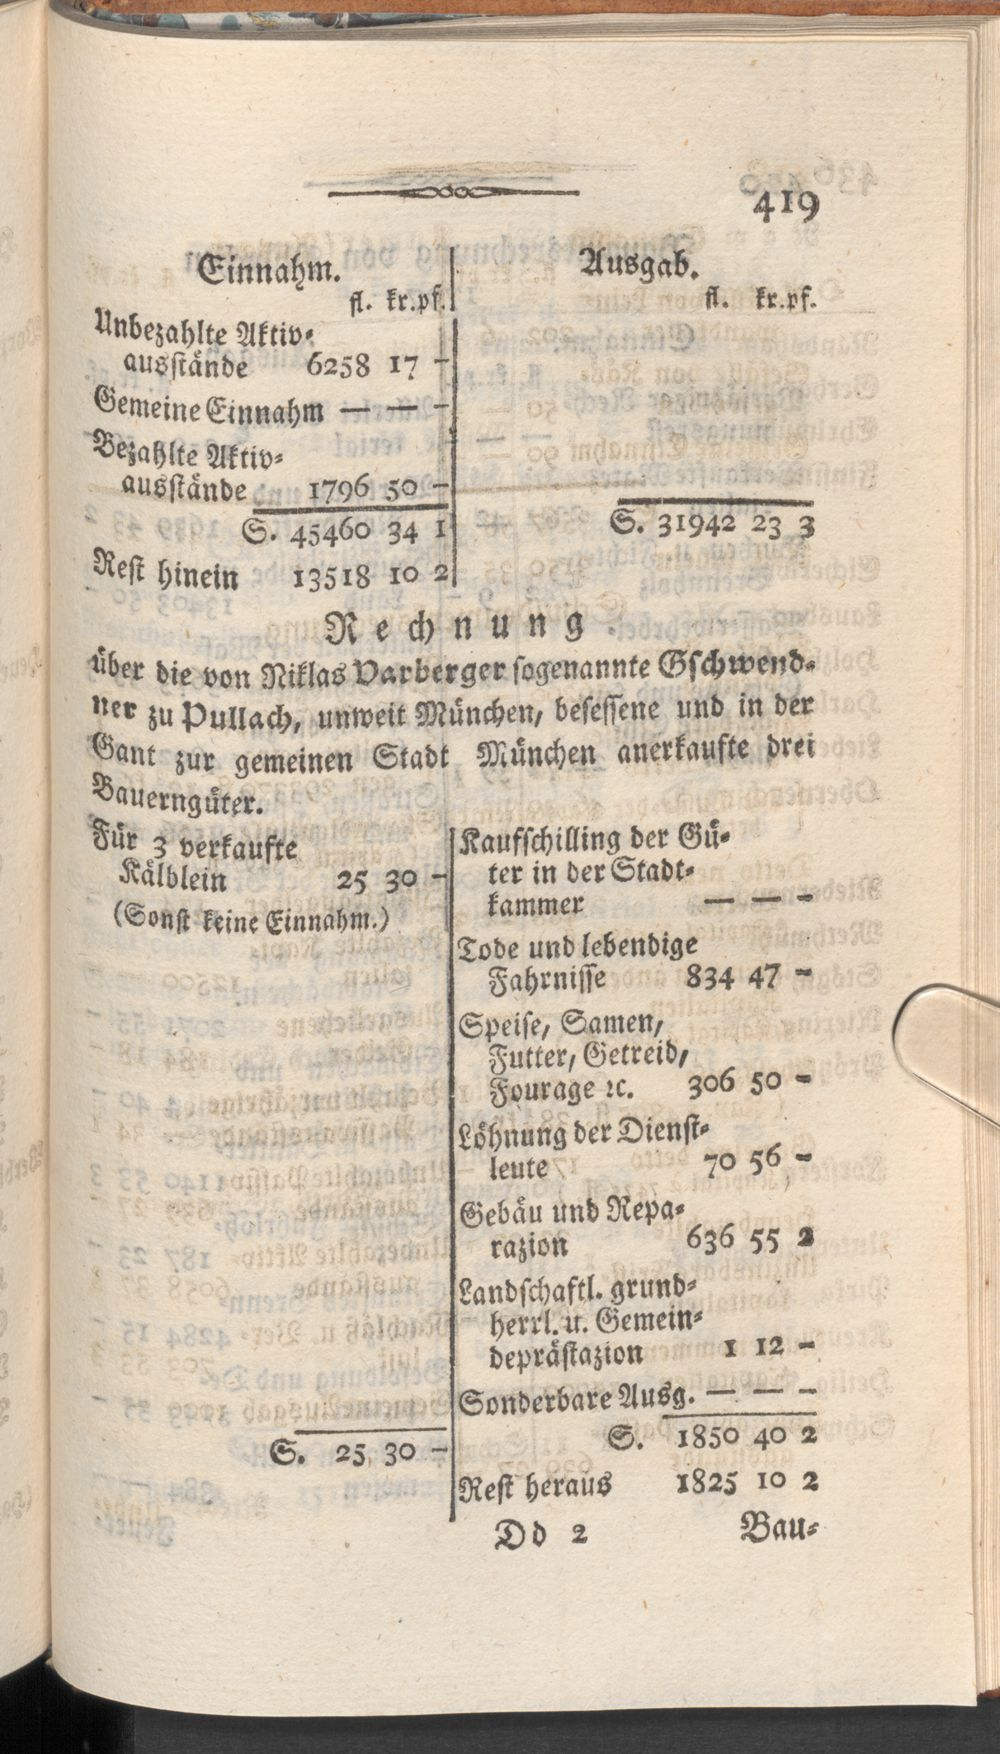 419
Einnahm.
fl. kr.pf.
Unbezahlte Aktiv-
ausstände 6258 17 —
Gemeine Einnahm — — —
Bezahlte Aktiv-
ausstände 1796 50 —
S. 45460 34 1
Rest hinein 13518 10 2
Ausgab.
fl. kr.pf.
S. 31942 23 3
Rechnung
über die von Niklas Varberger sogenannte Gschwend-
ner zu Pullach, unweit München, besessene und in der
Gant zur gemeinen Stadt München anerkaufte drei
Bauerngüter.
Für 3 verkaufte
Kälblein 25 30 —
(Sonst keine Einnahm.)
S. 25 30 —
Kaufschilling der Gü-
ter in der Stadt-
kammer — — —
Tode und lebendige
Fahrnisse 834 47 —
Speise, Samen,
Futter, Getreid,
Fourage ꝛc. 306 50 —
Löhnung der Dienst-
leute 70 56 —
Gebäu und Repa-
razion 636 55 2
Landschaftl. grund-
herrl. u. Gemein-
deprästazion 1 12 —
Sonderbare Ausg. — — —
S. 1850 40 2
Rest heraus 1825 10 2
Dd 2 Bau-